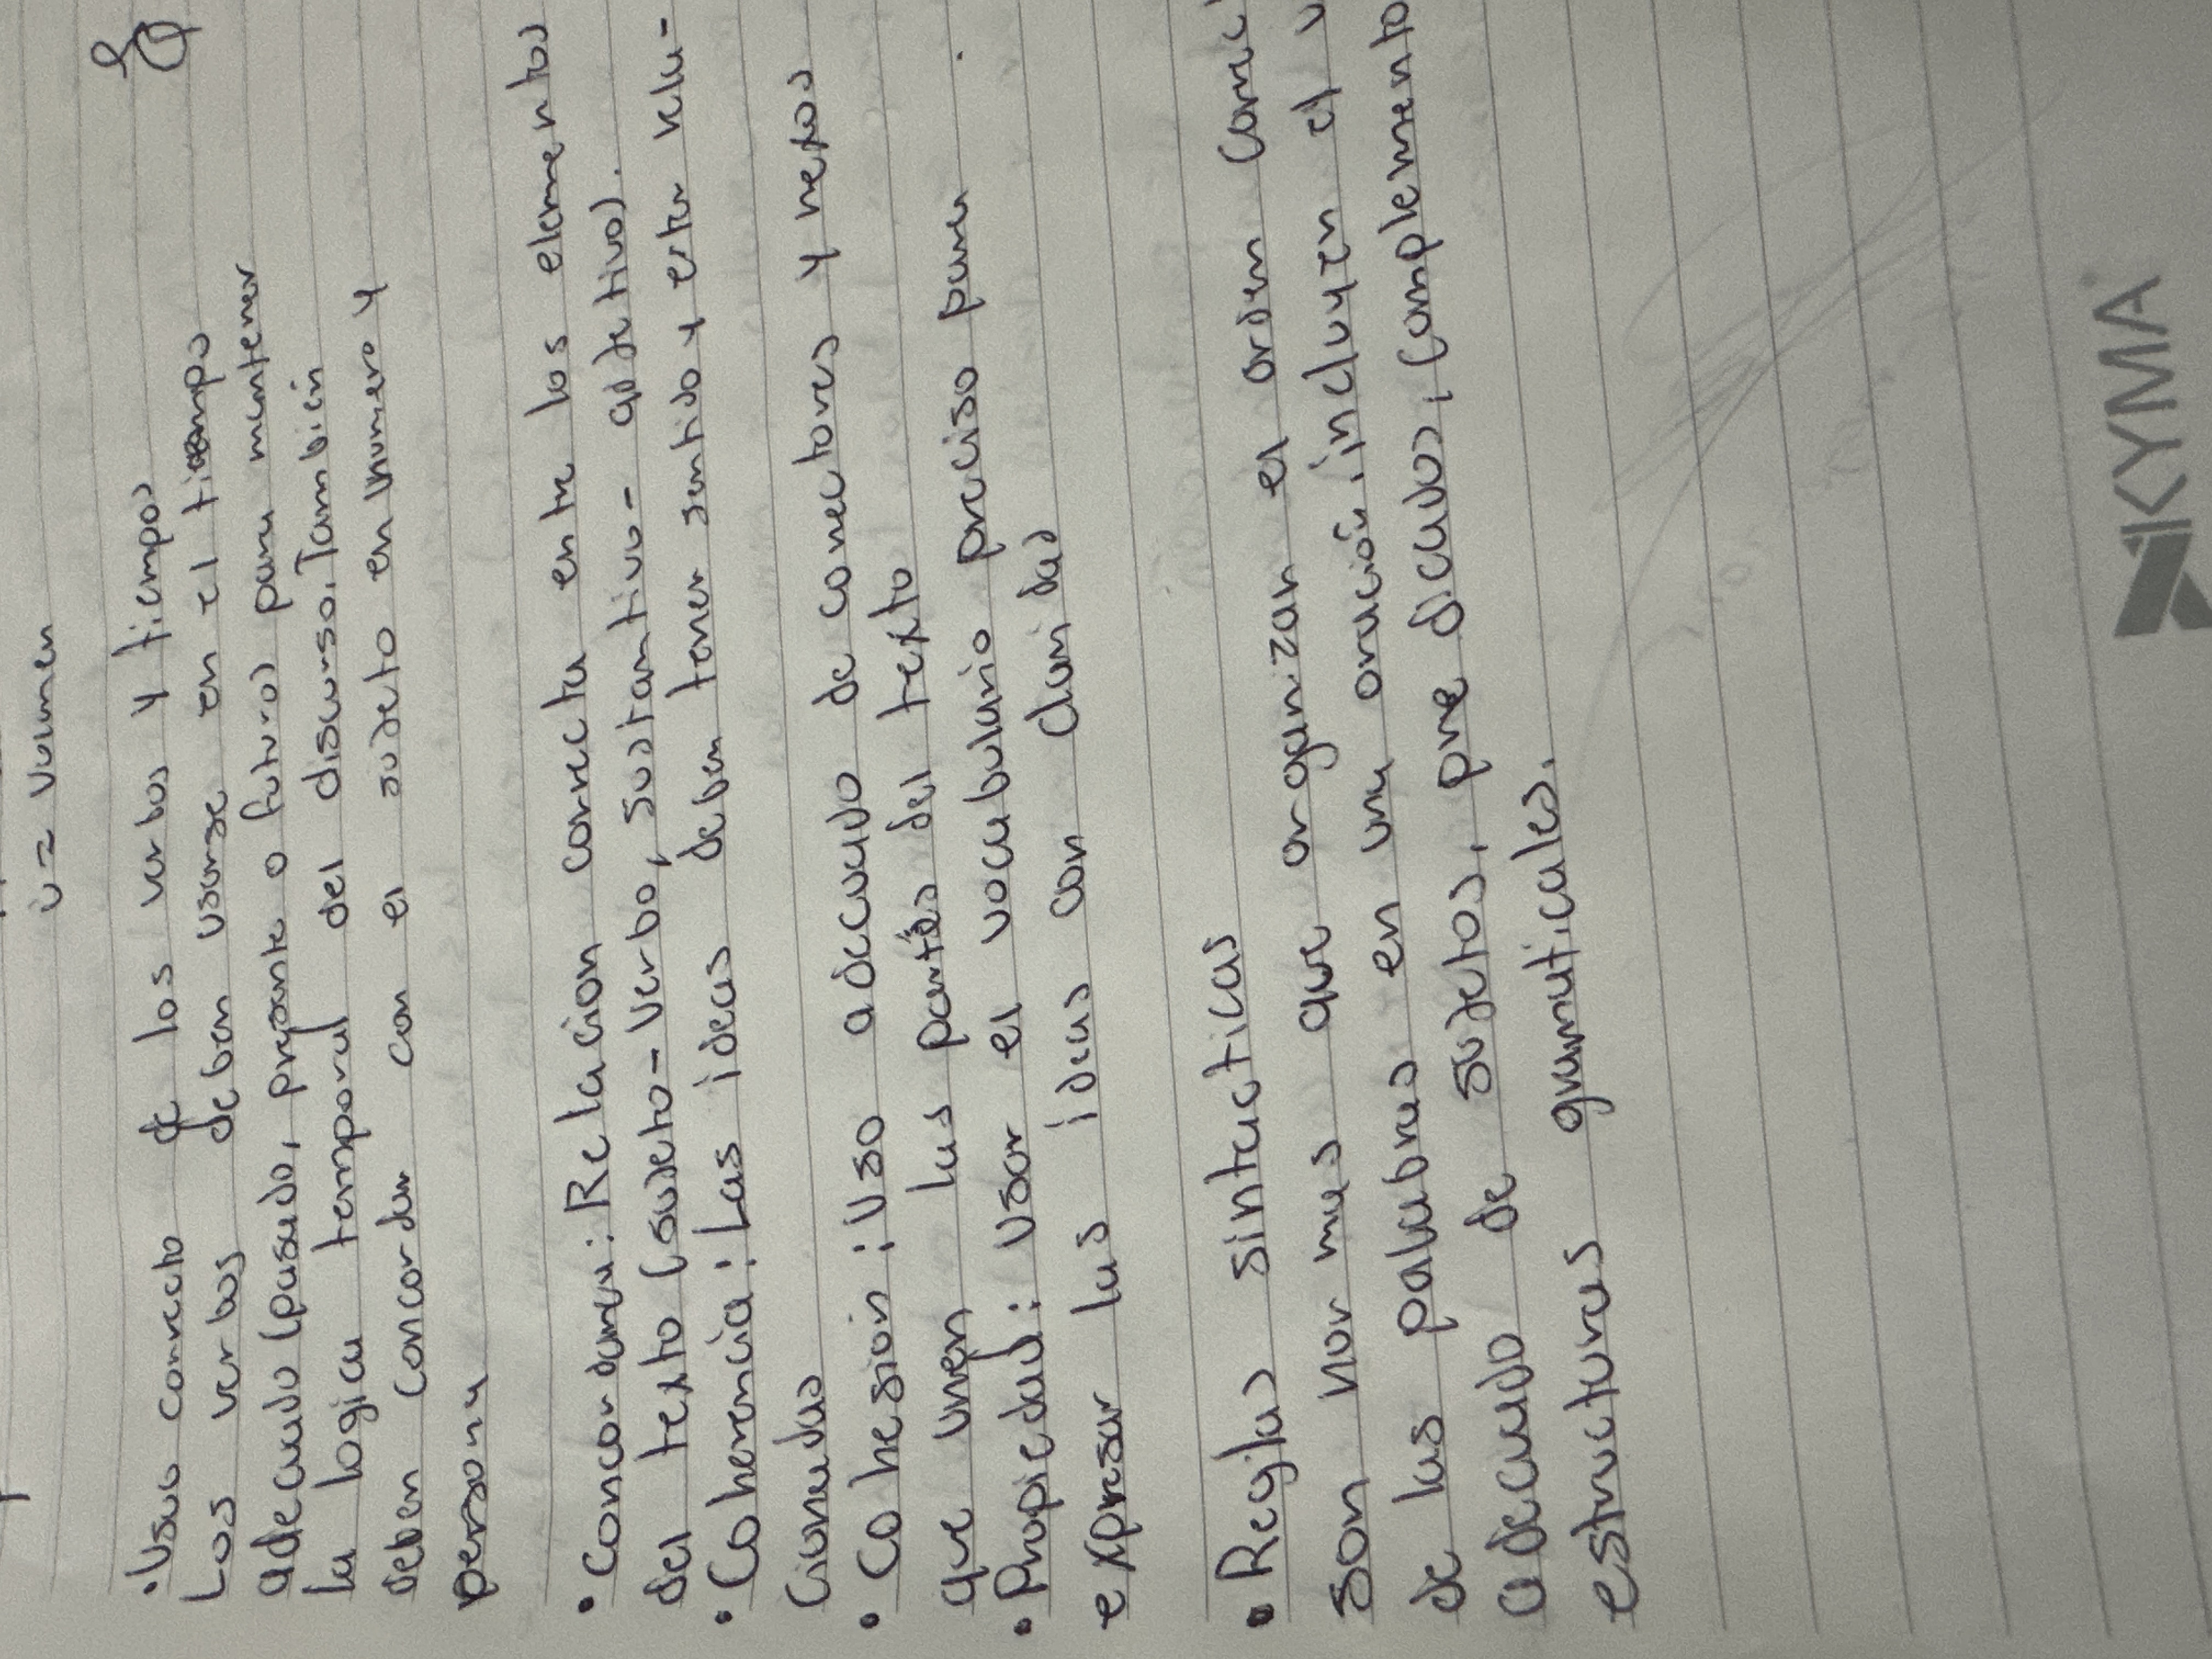 v = volumen
• Uso correcto de los verbos y tiempos
Los verbos deben usarse en el tiempo
adecuado (pasado, presente o futuro) para mantener
la logica temporal del discurso. Tambien
deben concordar con el sujeto en numero y
persona
• Concordancia: Relacion correcta entre los elementos
del texto (sujeto-verbo, sustantivo-adjetivo).
• Coherencia: Las ideas deben tener sentido y estar rela-
cionadas
• Cohesion: Uso adecuado de conectores y nexos
que unen las partes del texto
• Propiedad: Usar el vocabulario preciso para
expresar las ideas con claridad
• Reglas sintacticas
son normas que organizan el orden
de las palabras en una oración, incluyen el
adecuado de sujetos, predicados, complemento
estructuras gramaticales.
KYMA